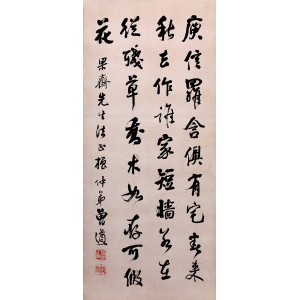 庾信羅含俱有宅春來
秋去作誰家短牆若在
從殘草喬木如存可假
花
果齋先生法正振仲弟曾遒